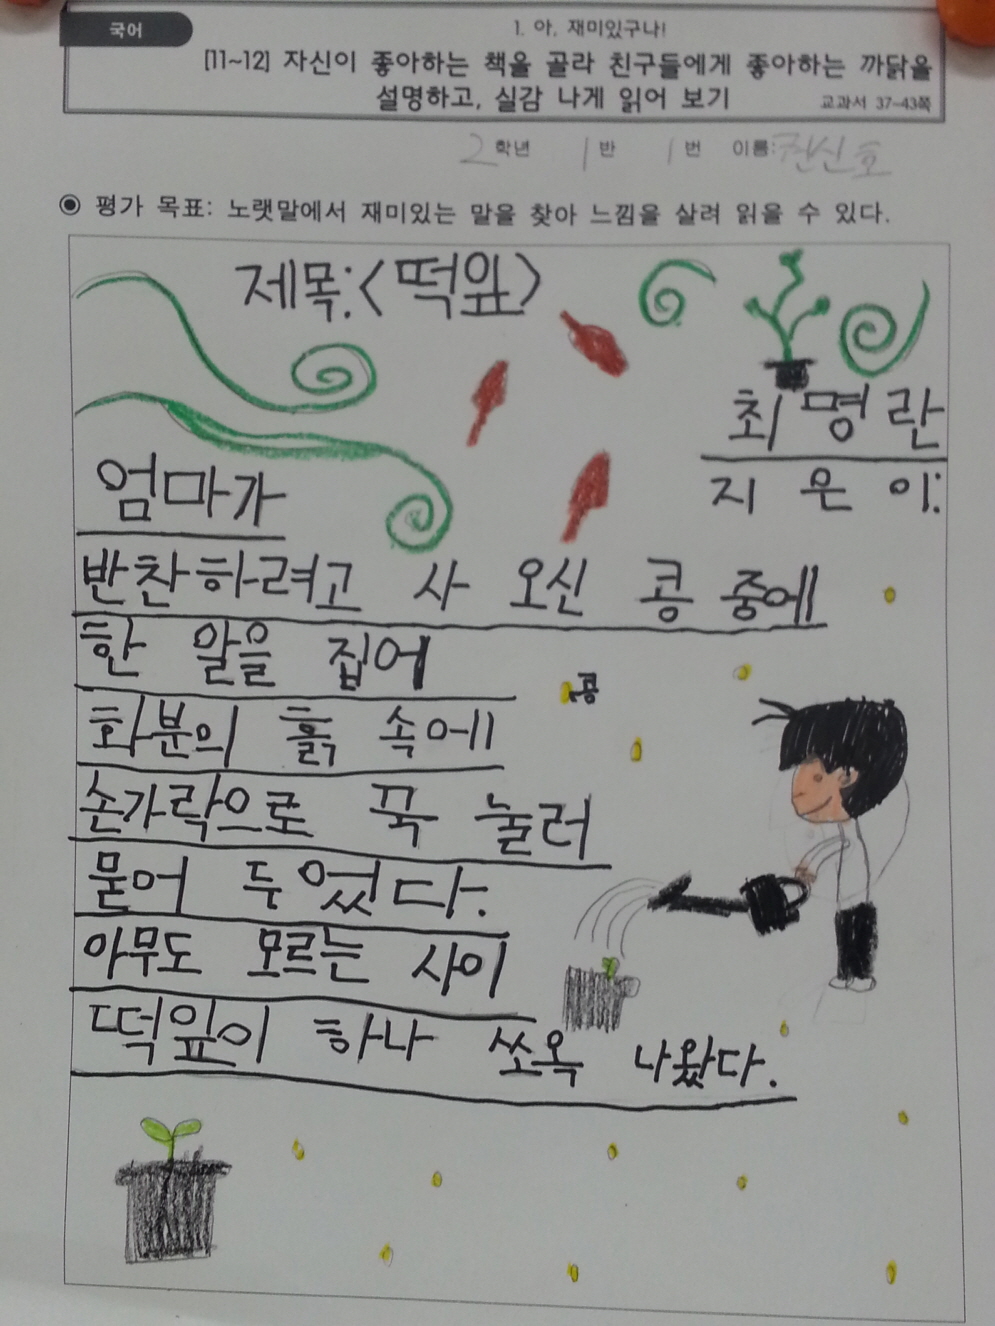 국어
1. 아, 재미있구나!
[11~12] 자신이 좋아하는 책을 골라 친구들에게 좋아하는 까닭을
설명하고, 실감 나게 읽어 보기
교과서 37-43쪽
2학년 1반 1번 이름: 권신호
◉ 평가 목표: 노랫말에서 재미있는 말을 찾아 느낌을 살려 읽을 수 있다.
제목:<떡잎>
최명란
지은이:
엄마가
반찬하려고 사 오신 콩 중에
한 알을 집어
화분의 흙 속에
콩
손가락으로 꾹 눌러
묻어 두었다.
아무도 모르는 사이
떡잎이 하나 쏘옥 나왔다.